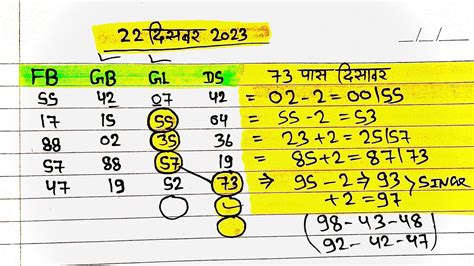 22 दिसबर 2023
_/_/_
FB GB GL DS 73 पास दिसावर
55 42 07 42 = 02-2 = 00/55
17 15 55 04 = 55-2 = 53
88 02 35 36 = 23+2 = 25/57
57 88 57 19 = 85+2 = 87/73
47 19 52 73 ⇒ 95-2 → 93 > SINGR
+2 = 97
(98-43-48
92-42-47)